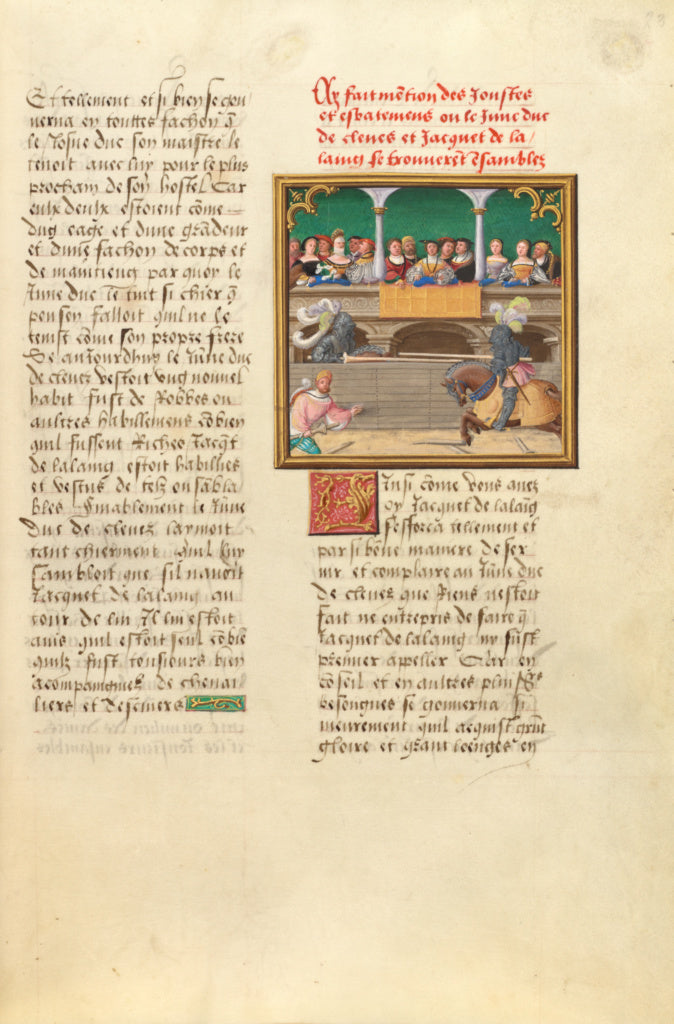 Et tellement et si bien se gou
verna en touttes fachon q̄
le Josne duc son maistre le
tenoit avec luy pour le plus
prochain de son hostel Car
eulx deulx estoient cōme
dug eage et dune grādeur
et dune fachon de corps et
de maintieng par quoy le
Jūne duc le tint si chier q̄
penser falloit quil ne le
tenist cōme son propre frere
Se aujourdhuy le Jūne duc
de cleves vestoit ung nouvel
habit fust de Robbes ou
aultres habillemens cōbien
quil fussent Riches Jacqt
de lalaing estoit habillies
et vestus de telz ou sābla
bles Finablement le Jūne
duc de cleves laymoit
tant chierment quil luy
sambloit que sil navoit
Jacquet de lalaing au
tour de lui Il lui estoit
avis quil estoit seul cōbie
quilz fust tousjours bien
acompaignies de cheval
liers et descuiers
Cy fait mētion des Joustes
et esbatemens ou le June duc
de cleves et Jacquet de la
laing se trouverēt ēsamblez
Ainsi cōme vous avez
oy Jacquet de lalaīg
sefforca tellement et
par si bōne maniere de ser
vir et complaire au Jūne duc
de cleves que Riens nestoit
fait ne entrepris de faire q̄
Jacquet de lalaing ny fust
premier appeller Car en
cōseil et en aultres plusrs
besongnes se gouverna si
meurement quil acquist grāt
gloire et grant loenges en